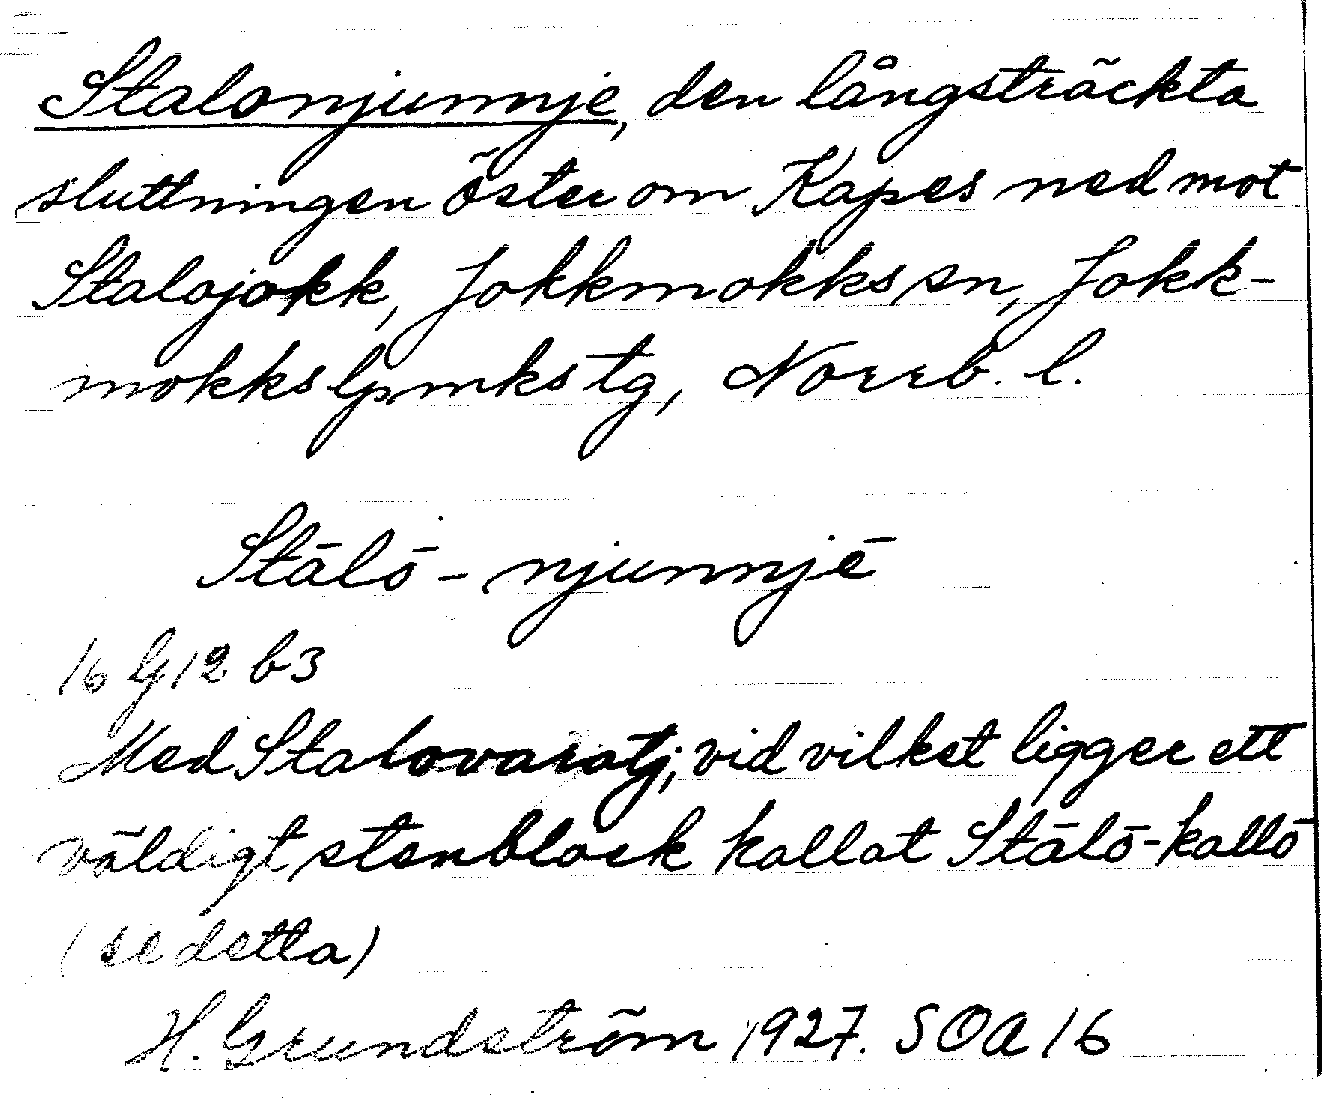 Stalonjunnje, den långsträckta
sluttningen öster om Kapes ned mot
Stalojokk, Jokkmokks sn, Jokk-
mokks lpmks tg, Norrb. l.
Stālō - njunnjē
16 G12 b3
Med Stalovaratj, vid vilket ligger ett
väldigt stenblock kallat Stālō-kallō
(se detta)
H. Grundström 1927. SOA 16